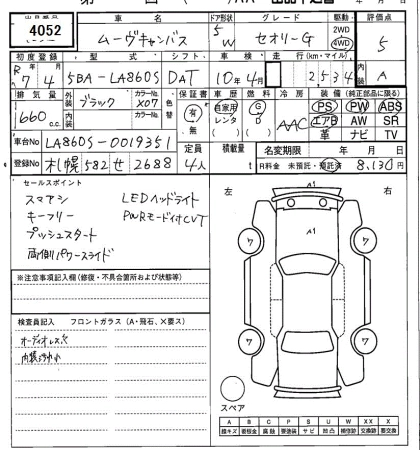 出品番号 車名 ドア形状 グレード 駆動 評価点
4052 ムーヴキャンバス 5 W セオリーG 2WD 4WD 5
初度登録 型式 シフト 車検 走行(km・マイル) 内装
R7年4月 5BA-LA860S DAT 10年4月 2534 A
排気量 外装 カラーNo. 色替 保証書 車歴 燃料 冷房 装備(純正部品に限る)
660c.c. ブラック X07 有・無 自家用 レンタ G D AAC PS PW ABS
内装 カラーNo. エアB AW SR
革 ナビ TV
車台No LA860S-0019351 定員 積載量 名変期限 年 月 日
登録No 札幌 582 せ 2688 4人 t R料金 未預託・預託済 8,130円
セールスポイント
スマアシ LEDヘッドライト
キーフリー PWRモード付CVT
プッシュスタート
両側パワースライド
※注意事項記入欄(修復・不具合箇所および状態等)
検査員記入 フロントガラス(A・飛石、X要ス)
オーディオレス
内装汚れ小
左 A1 右
A1
ワ ワ
ワ ワ
スペア
A B C P S U W X XX